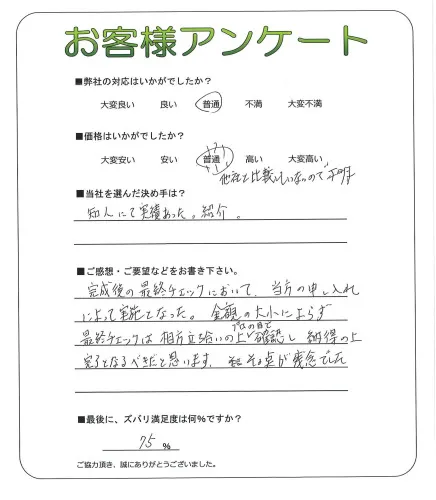 お客様アンケート
■弊社の対応はいかがでしたか？
大変良い 良い 普通 不満 大変不満
■価格はいかがでしたか？
大変安い 安い 普通 高い 大変高い
他社と比較していないので不明
■当社を選んだ決め手は？
知人にて実績あった。紹介。
■ご感想・ご要望などをお書き下さい。
完成後の最終チェックにおいて、当方の申し入れ
によって実施となった。金額の大小によらず
プロの目で
最終チェックは相方立ち会いの上で確認し納得の上
完了となるべきだと思います。その点が残念でした
■最後に、ズバリ満足度は何％ですか？
75 %
ご協力頂き、誠にありがとうございました。